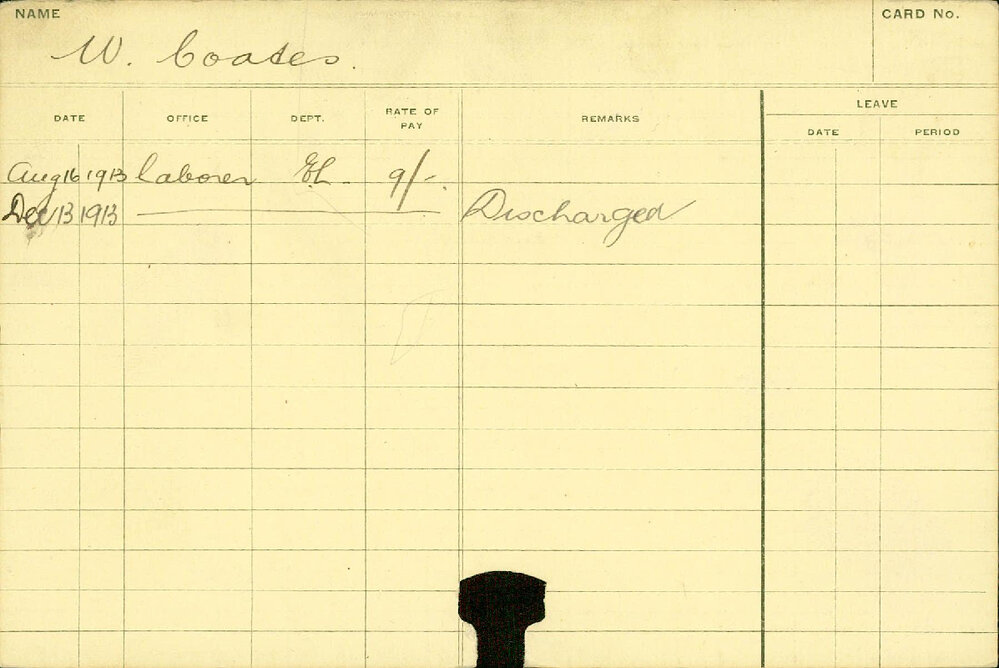 NAME CARD No.
W. Coates.
LEAVE
DATE OFFICE DEPT. RATE OF PAY REMARKS DATE PERIOD
Aug 16 1913 laborer EL 9/-
Dec 13 1913 Discharged